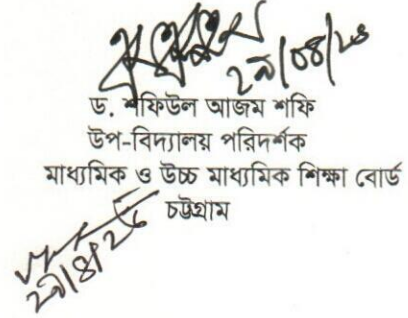 ২৯/০৪/২৫
ড. শফিউল আজম শফি
উপ-বিদ্যালয় পরিদর্শক
মাধ্যমিক ও উচ্চ মাধ্যমিক শিক্ষা বোর্ড
চট্টগ্রাম
২৯/৪/২৫